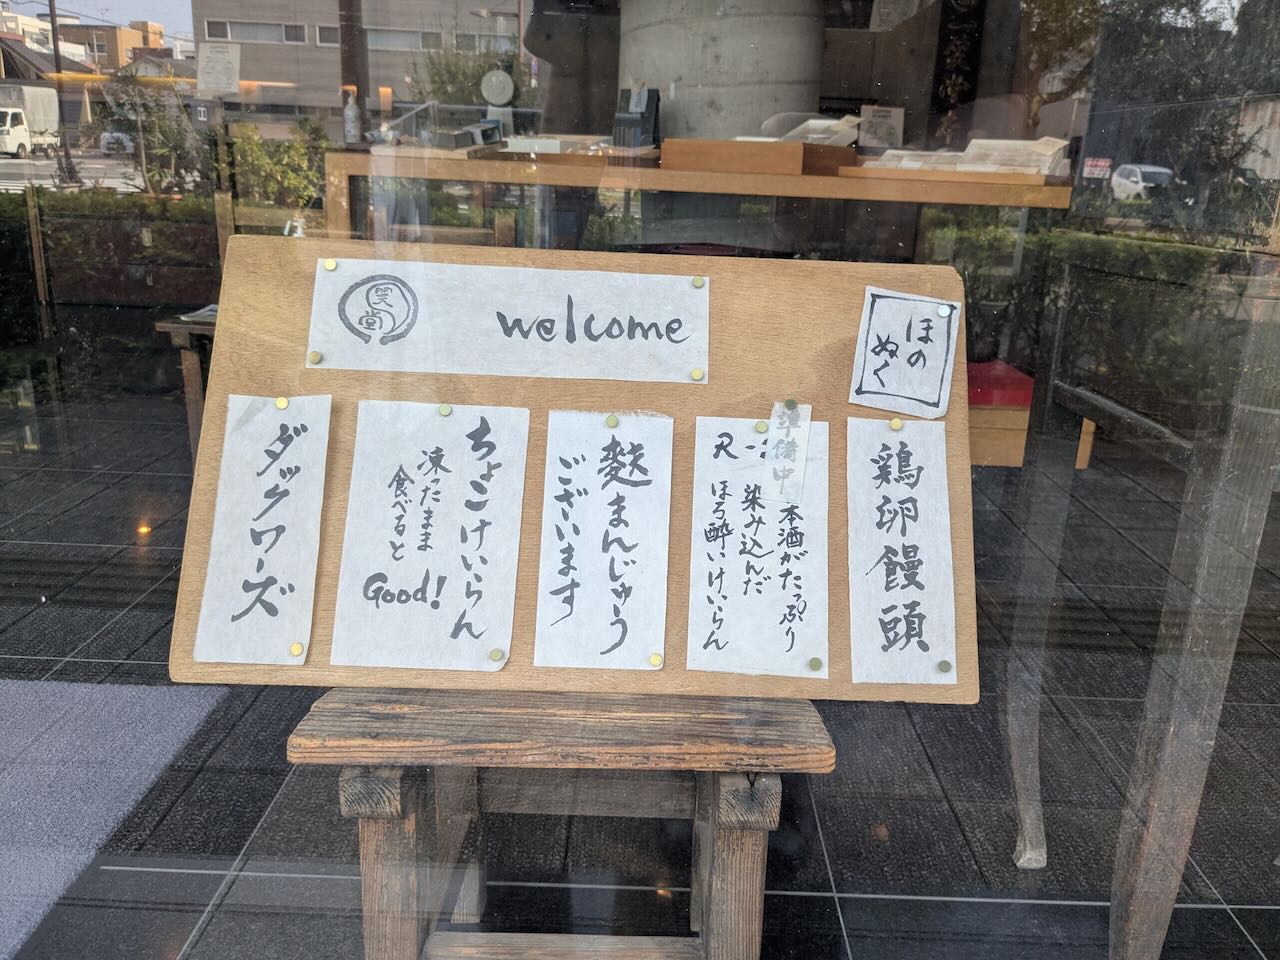 笑堂
welcome
ほの
ぬく
鶏卵饅頭
準備中
R-
本酒がたっぷり
染み込んだ
ほろ酔いけいらん
麩まんじゅう
ございます
ちょこけいらん
凍ったまま
食べると
Good!
ダックワーズ